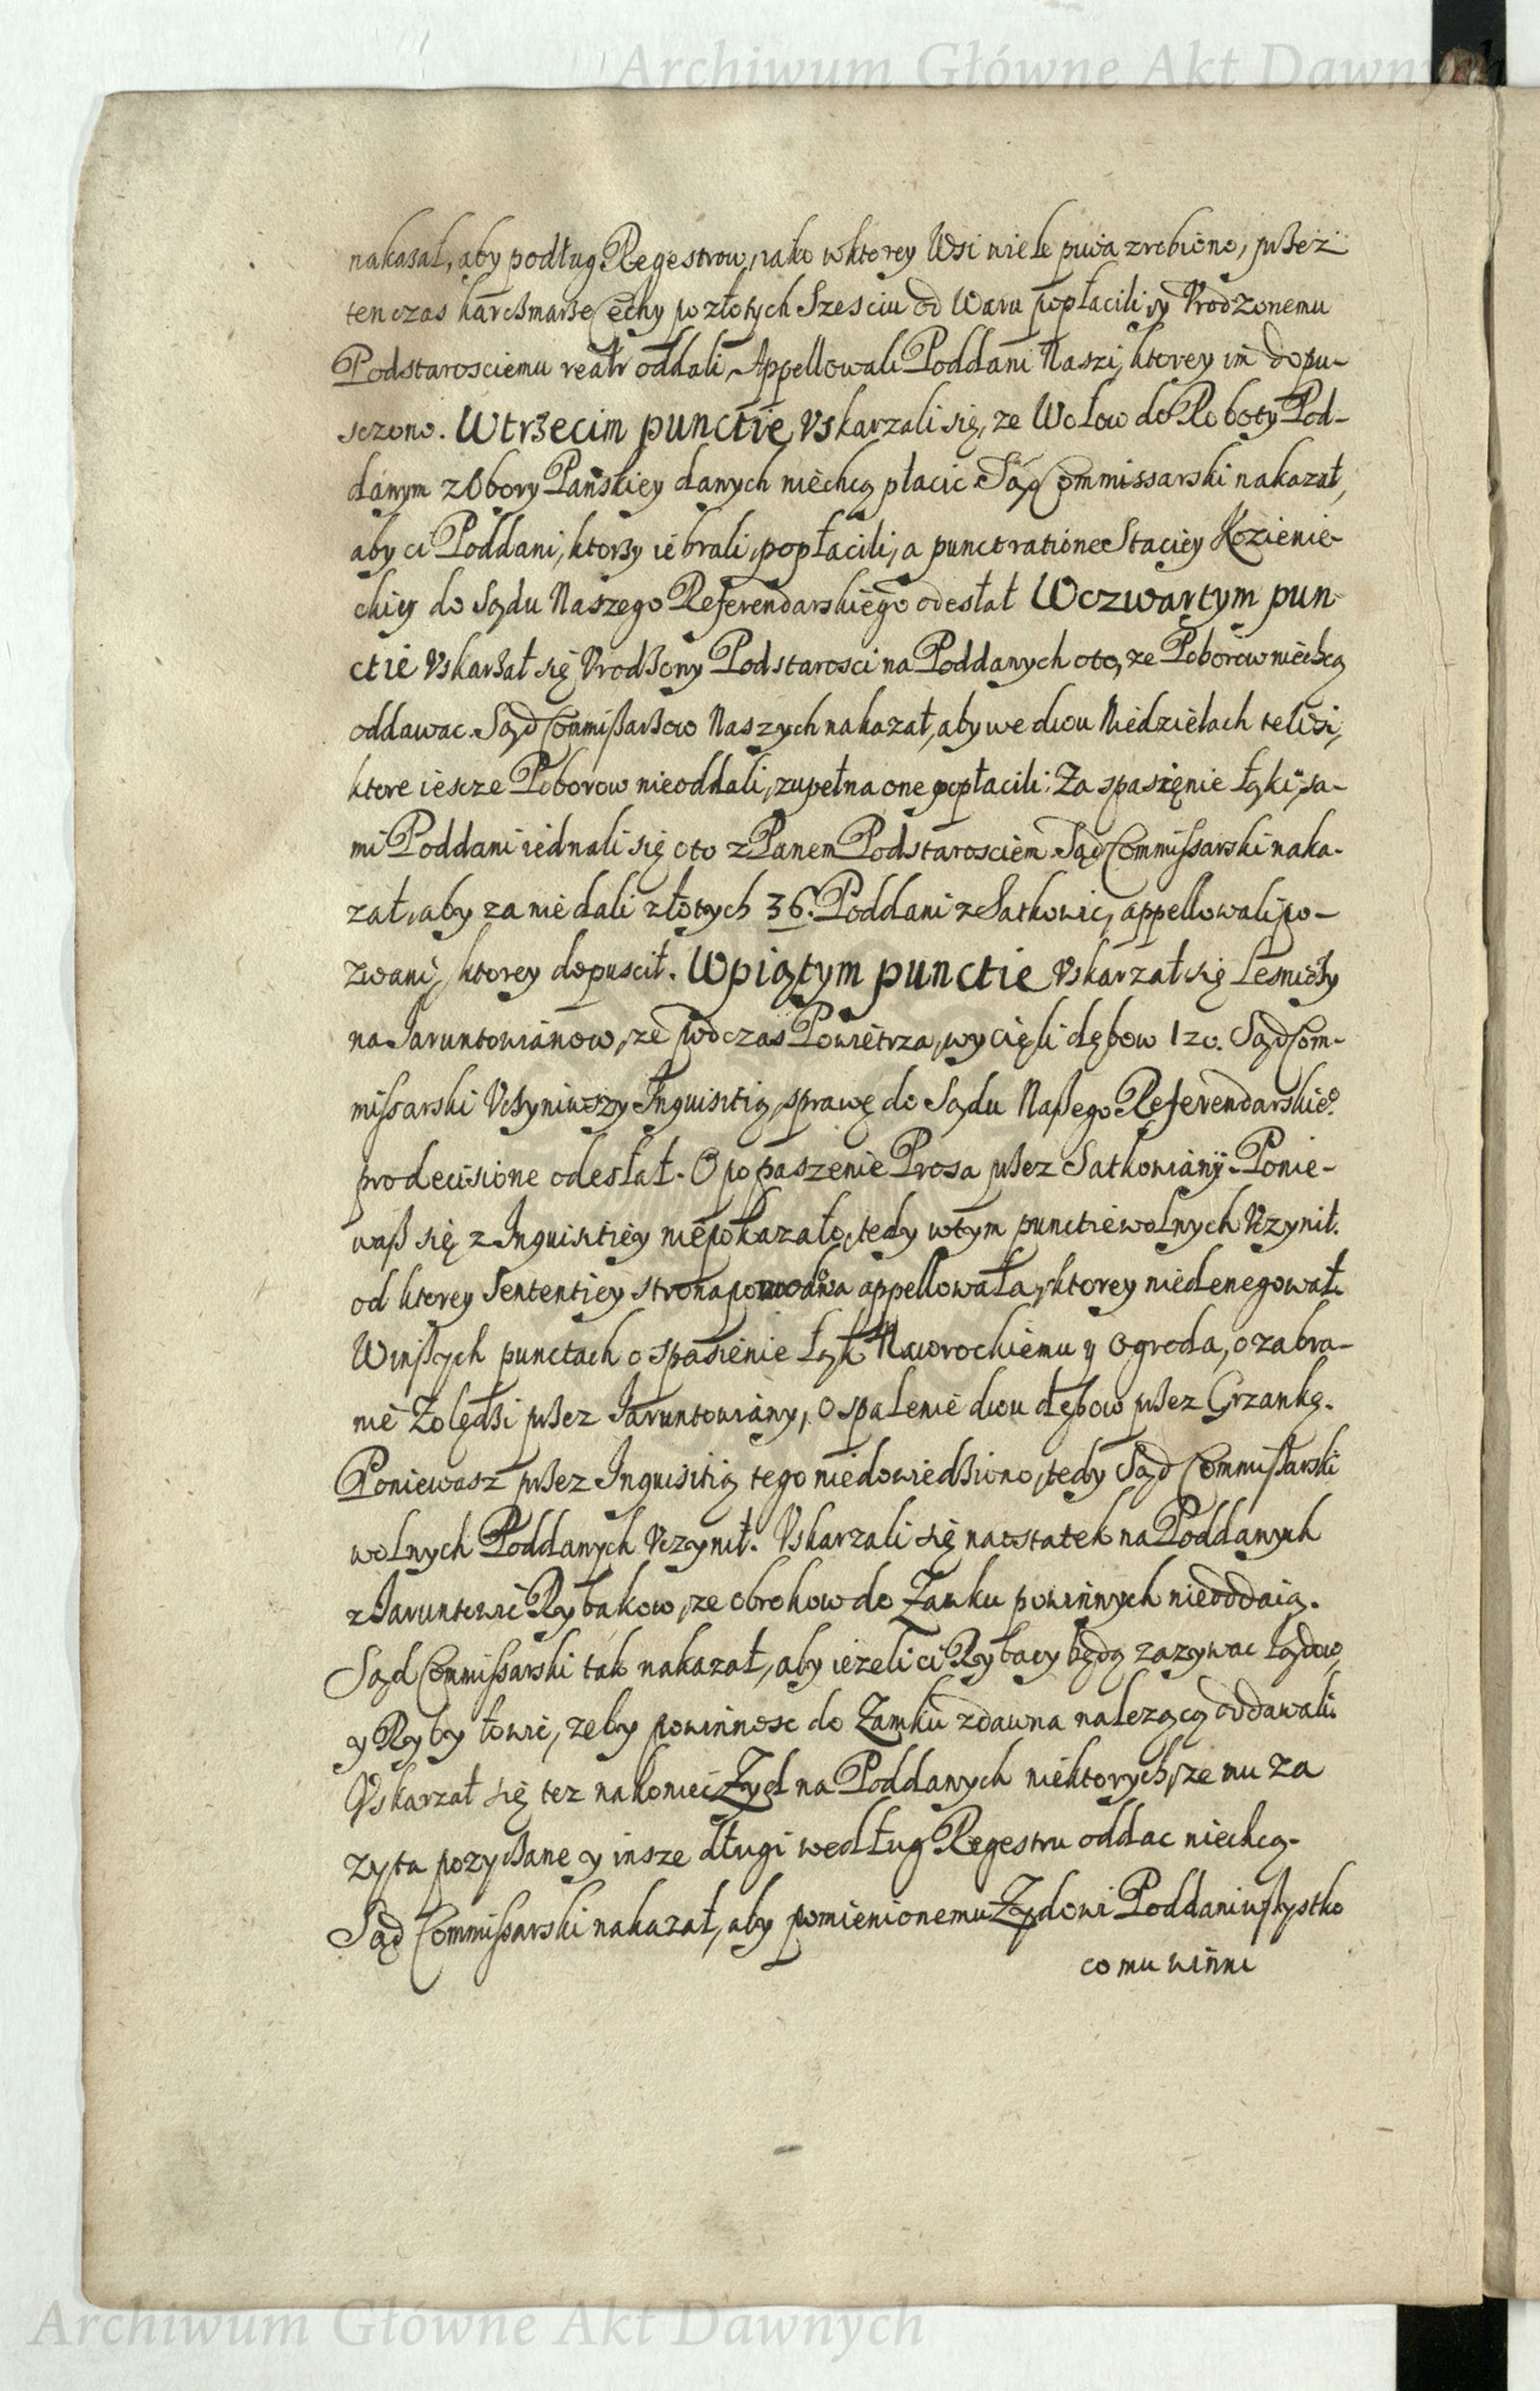 Archiwum Główne Akt Dawnych
nakasał, aby podług Regestrow, iako wktorey Wsi wiele piwa zrobiono, przez
tenczas karczmarze Cechy po złotych Szesciu od Waru popłacili y Vrodzonemu
Podstarosciemu oddali, Appellowali Poddani Naszi, ktorey im dopu-
sczono. Wtrzecim punctie Vskarzali się, ze Wołow do Roboty Pod-
danym z Obory Pańskiey danych niechcą płacic Sąd Commissarski nakazał,
aby ci Poddani, ktorzy ie brali, popłacili, a punct ratione Staciey Kozienie-
ckiey do Sądu Naszego Referendarskiego odesłał Wczwartym pun-
ctie Vskarzał się Vrodzony Podstarosci na Poddanych oto, ze Poborow niechcą
oddawac. Sąd Commissarzow Naszych nakazał, aby we dwu Niedzielach te Wsi,
ktore iescze Poborow nieoddali, zupełna one popłacili: Za spasięnie Łąki, sa-
mi Poddani iednali się oto z Panem Podstarosciem Sąd Commissarski naka-
zał, aby za nie dali złotych 36. Poddani z Satkowic, appellowali po-
zwani, ktorey dopuscił. Wpiątym punctie Vskarzał się Lesniczy
na Jaruntowianow, ze podczas Powietrza, wycięli dębow 120. Sąd Com-
missarski Vczyniwszy Inquisitią, sprawę do Sądu Naszego Referendarskieo
pro decisione odesłał. O popaszenie Prosa przez Satkowiany. Ponie-
wasz się z Inquisitiey niepokazało, tedy wtym punctie wolnych Vczynił.
od ktorey Sententiey strona powodna appellowała, ktorey niedenegował.
Winszych punctach o spasienie Łąk Naworockiemu y Ogroda, o zabra-
nie Zolędzi przez Jaruntowiany, O spalenie dwu dębow przez Grzankę.
Poniewasz przez Inquisitią tego niedowiedziono, tedy Sąd Commissarski
wolnych Poddanych Vczynił. Vskarzali się naostatek na Poddanych
z Jaruntowic Rybakow, ze obrokow do Zamku powinnych nieoddaią.
Sąd Commissarski tak nakazał, aby iezeli ci Rybacy będą zazywac Lądow,
y Ryby łowic, zeby powinnosc do Zamku zdawna nalezącą oddawali.
Vskarzał się tez nakoniec Zyd na Poddanych niektorych, ze mu za
zyta pozyczane y insze długi według Regestru oddac niechcą.
Sąd Commissarski nakazał, aby pomienionemu Zydowi Poddani wszystko
co mu winni
Archiwum Główne Akt Dawnych